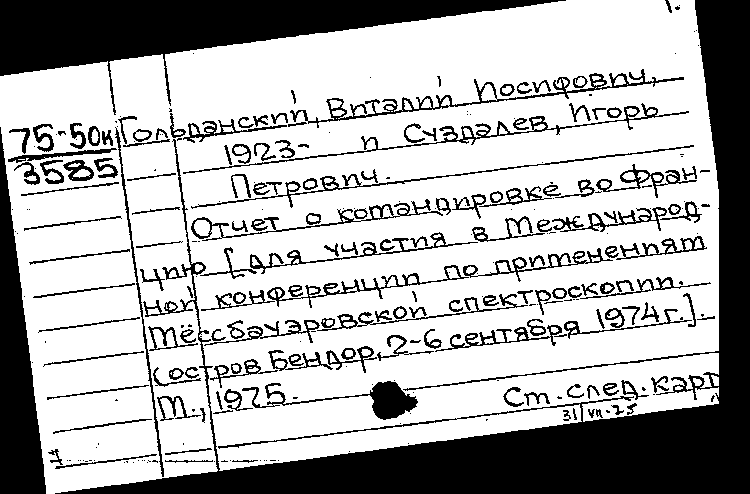 1.
75-50н Гольданский, Виталий Иосифович,
3585 1923- и Суздалев, Игорь
Петрович.
Отчет о командировке во Фран-
цию [для участия в Международ-
ной конференции по применениям
Мёссбауэровской спектроскопии.
(остров Бендор, 2-6 сентября 1974г.].
М., 1975.
Ст. след. карт
31/VII-75